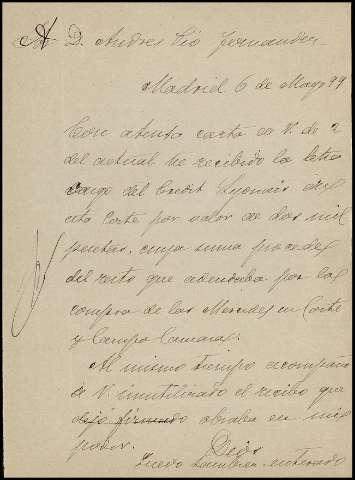 A D. Andres Pió Fernandez
Madrid 6 de Mayo 99
Con atenta carta de V. de 2
del actual he recibido la letra
cargo del Credit Lyonais de
esta Corte por valor de dos mil
pesetas, cuya suma procede
del resto que adeudaba por la
compra de las Mercedes en Corte
y Campo Camaras.
Al mismo tiempo acompaño
a V. inutilizado el recibo que
dejó firmado obraba en mi
poder.
Quedo tambien enterado